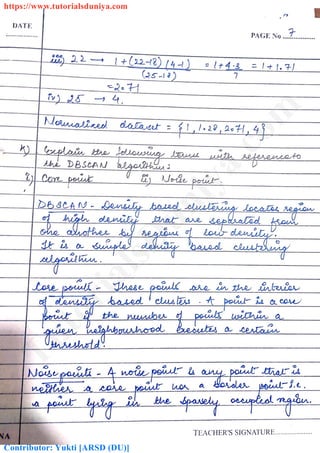 https://www.tutorialsduniya.com
DATE
PAGE No. 7
iii) 22 → 1 + (22-18)(4-1) = 1 + 4·3 = 1 + 1.71
(25-18) 7
= 2.71
iv) 25 → 4.
Normalized dataset = {1, 1.28, 2.71, 4}
Explain the following terms with reference to
the DBSCAN algorithm:
i) Core point ii) Noise point.
DBSCAN - Density based clustering locates region
of high density that are separated from
one another by regions of low density.
It is a simple density based clustering
algorithm.
Core points - These points are in the interior
of density based clusters. A point is a core
point if the number of points within a
given neighbourhood executes a certain
threshold.
Noise points - A noise point is any point that is
neither a core point nor a border point i.e.
a point lying in the sparsely occupied region.
NA
TEACHER'S SIGNATURE
Contributor: Yukti [ARSD (DU)]